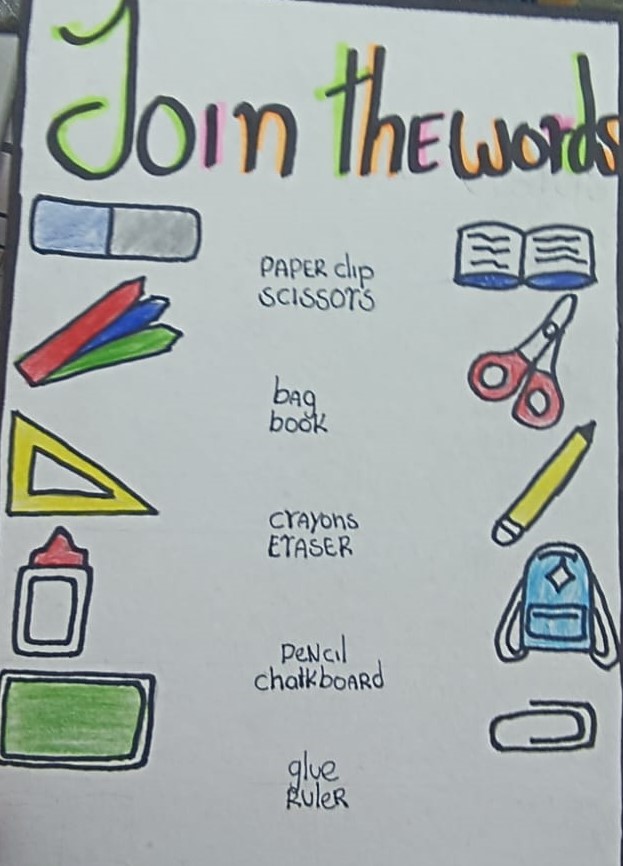 Join thE words
PAPER clip
SCISSORS
bAg
book
crayons
ERASER
PeNcil
chalkboARd
glue
RuleR